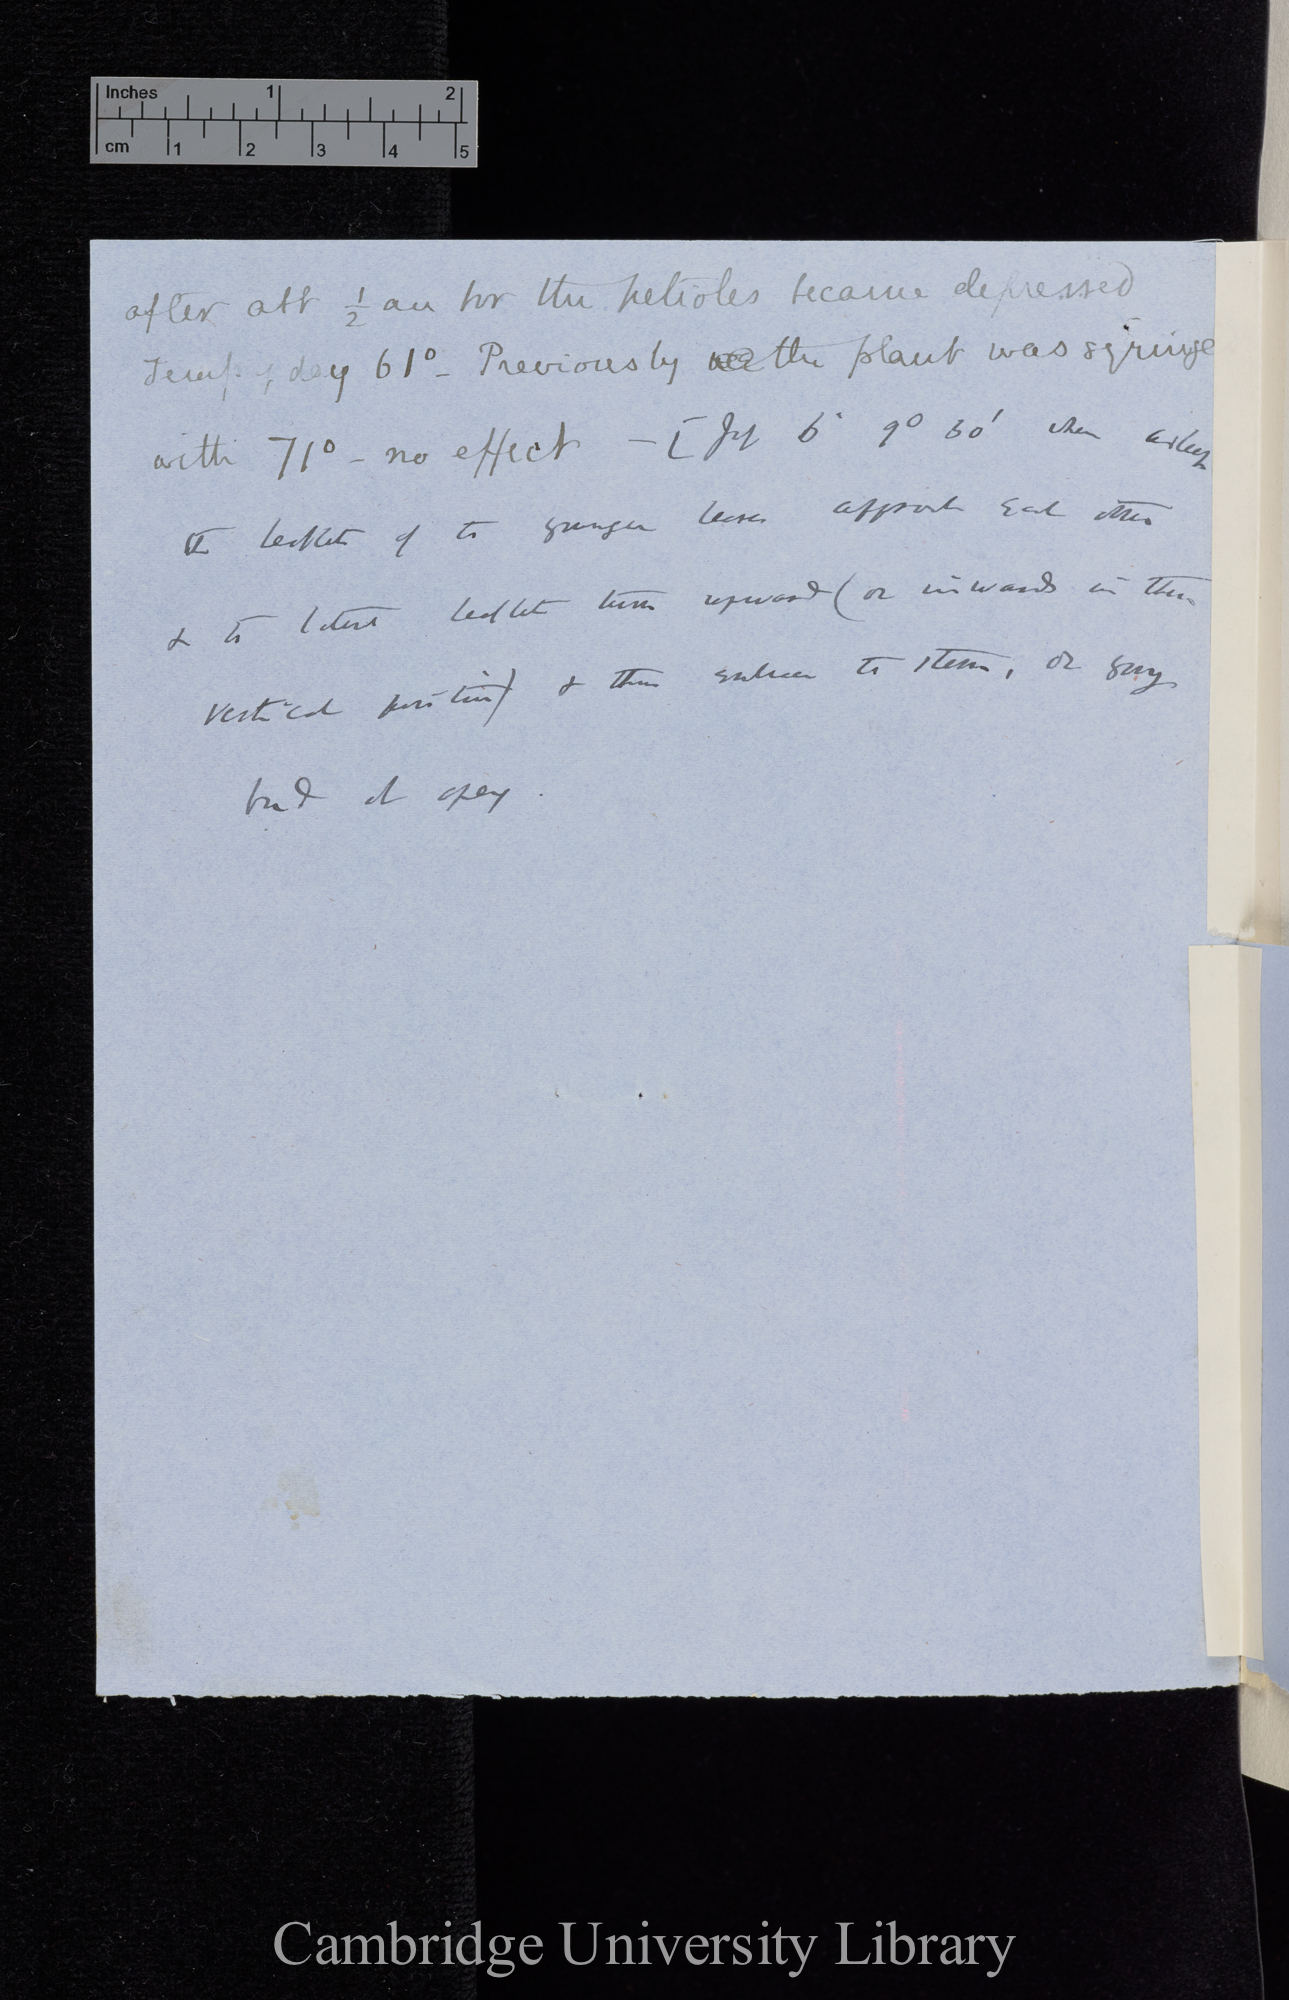 Inches 1 2
cm 1 2 3 4 5
after abt ½ an hr the petioles became depressed
Temp of day 61° – Previously the plant was syringe
with 71° – no effect – [ 6 9° 30' when asleep
The leaflets of the younger leaves approach each other
& the lateral leaflets turn upward (or inwards in their
vertical position) & thus embrace the stem, or young
bud at apex.
Cambridge University Library